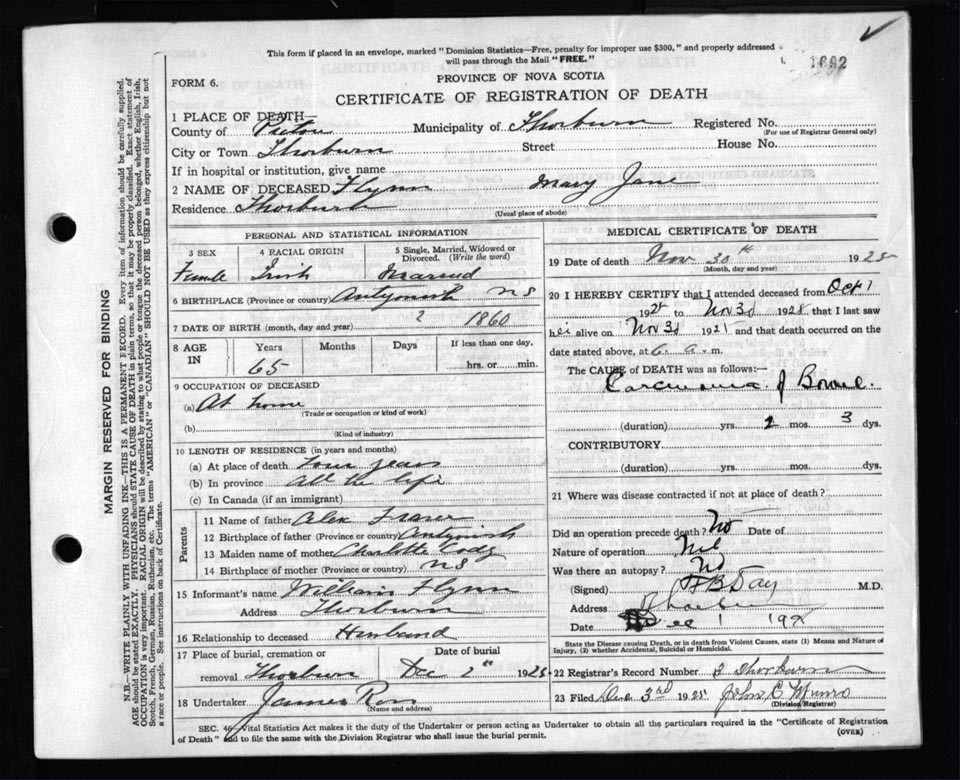 This form if placed in an envelope, marked "Dominion Statistics—Free, penalty for improper use $300," and properly addressed
will pass through the Mail "FREE."
PROVINCE OF NOVA SCOTIA
FORM 6.
CERTIFICATE OF REGISTRATION OF DEATH
1 PLACE OF DEATH—
County of Pictou Municipality of Thorburn Registered No.
(For use of Registrar General only)
City or Town Thorburn Street House No.
If in hospital or institution, give name
2 NAME OF DECEASED Flynn Mary Jane
Residence Thorburn
(Usual place of abode)
PERSONAL AND STATISTICAL INFORMATION
3 SEX 4 RACIAL ORIGIN 5 Single, Married, Widowed or
Divorced. (Write the word)
Female Irish Married
6 BIRTHPLACE (Province or country) Antigonish N S
7 DATE OF BIRTH (month, day and year) ? 1860
8 AGE IN Years Months Days If less than one day,
65 hrs. or min.
9 OCCUPATION OF DECEASED
(a) At home
(Trade or occupation or kind of work)
(b)
(Kind of industry)
10 LENGTH OF RESIDENCE (in years and months)
(a) At place of death four years
(b) In province All the life
(c) In Canada (if an immigrant)
Parents
11 Name of father Alex Fraser
12 Birthplace of father (Province or country) Antigonish
13 Maiden name of mother Charlotte
14 Birthplace of mother (Province or country) N S
15 Informant's name William Flynn
Address Thorburn
16 Relationship to deceased Husband
17 Place of burial, cremation or Date of burial
removal Thorburn Dec 2nd 1925
18 Undertaker James Ross
(Name and address)
MEDICAL CERTIFICATE OF DEATH
19 Date of death Nov 30th 1925
(Month, day and year)
20 I HEREBY CERTIFY that I attended deceased from Oct 1
1925 to Nov 30 1925 that I last saw
her alive on Nov 30 1925 and that death occurred on the
date stated above, at 6. a. m.
The CAUSE of DEATH was as follows:—
Carcinoma of Bowel.
(duration) yrs. 2 mos. 3 dys.
CONTRIBUTORY
(duration) yrs. mos. dys.
21 Where was disease contracted if not at place of death?
Did an operation precede death? No Date of
Nature of operation Nil
Was there an autopsy? No
(Signed) Day M.D.
Address Thorburn
Date Dec 1 192
State the Disease causing Death, or in death from Violent Causes, state (1) Means and Nature of
Injury, (2) whether Accidental, Suicidal or Homicidal.
22 Registrar's Record Number 3 Thorburn
23 Filed Dec 3rd 1925 John C Munro
(Division Registrar)
SEC. 46 Vital Statistics Act makes it the duty of the Undertaker or person acting as Undertaker to obtain all the particulars required in the "Certificate of Registration
of Death" and to file the same with the Division Registrar who shall issue the burial permit.
(OVER)
MARGIN RESERVED FOR BINDING
N.B.—WRITE PLAINLY WITH UNFADING INK—THIS IS A PERMANENT RECORD. Every item of information should be carefully supplied.
AGE should be stated EXACTLY. PHYSICIANS should STATE CAUSE OF DEATH in plain terms, so that it may be properly classified. Exact statement of
OCCUPATION is very important. RACIAL ORIGIN will be described by stating to what people or tongue the deceased person belonged, whether English, Irish,
Scotch, French, German, Russian, Ruthenian, etc. The terms "AMERICAN" or "CANADIAN" SHOULD NOT BE USED as they express citizenship but not
a race or people. See instructions on back of Certificate.